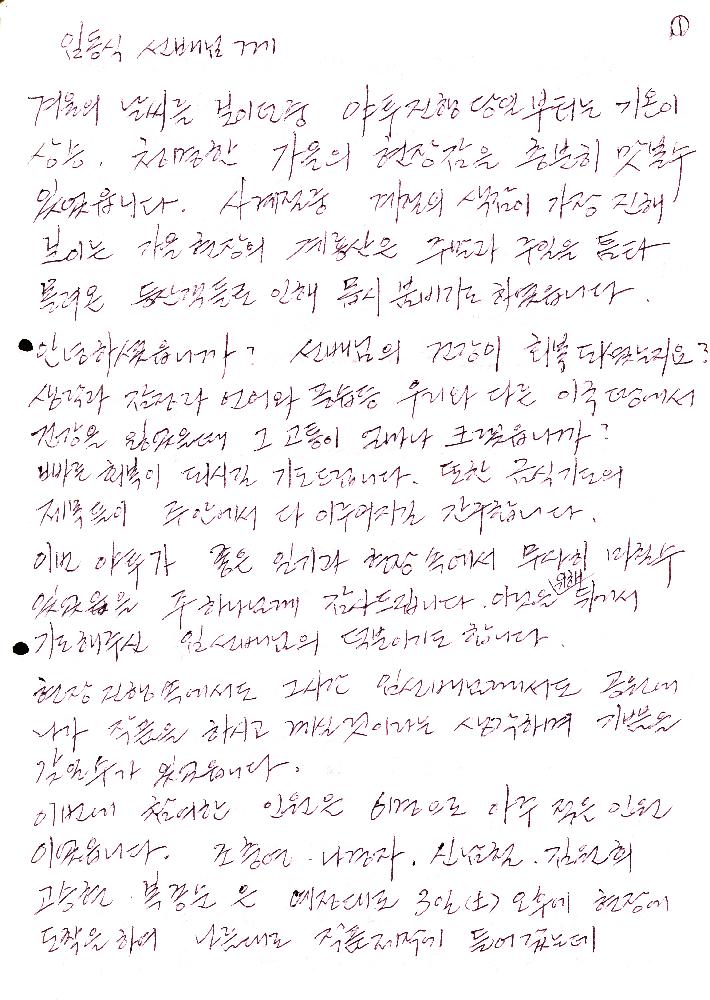 ①
임동식 선배님 께
겨울의 날씨를 보이던중 야투진행 당일부터는 기온이
상승. 청명한 가을의 현장감을 충분히 맛볼수
있었읍니다. 사계절중 계절의 색감이 가장 진해
보이는 가을현장의 계룡산은 주말과 주일을 틈타
몰려온 등산객들로 인해 몹시 붐비기도 하였읍니다.
안녕하셨읍니까? 선배님의 건강이 회복 되셨는지요?
생각과 감정과 언어와 풍습등 우리와 다른 이국땅에서
건강을 잃었을때 그 고통이 얼마나 크겠읍니까?
빠른 회복이 되시길 기도드립니다. 또한 금식기도의
제목들이 주안에서 다 이루어지길 간구합니다.
이번 야투가 좋은 일기와 현장 속에서 무사히 마칠수
있었음을 주 하나님께 감사드립니다. 위해 뒤에서
기도해주신 임선배님의 덕분이기도 합니다.
현장 진행 속에서도 그시간 임선배님께서도 공원에
나가 작품을 하시고 계실것이라는 생각하며 기쁨을
가질수가 있었읍니다.
이번에 참여한 인원은 6명으로 아주 적은 인원
이었읍니다. 조충연. 나경자. 신남철. 김원희
고승현. 은 예전대로 3일(土) 오후에 현장에
도착을 하여 나름대로 작품제작에 들어갔는데